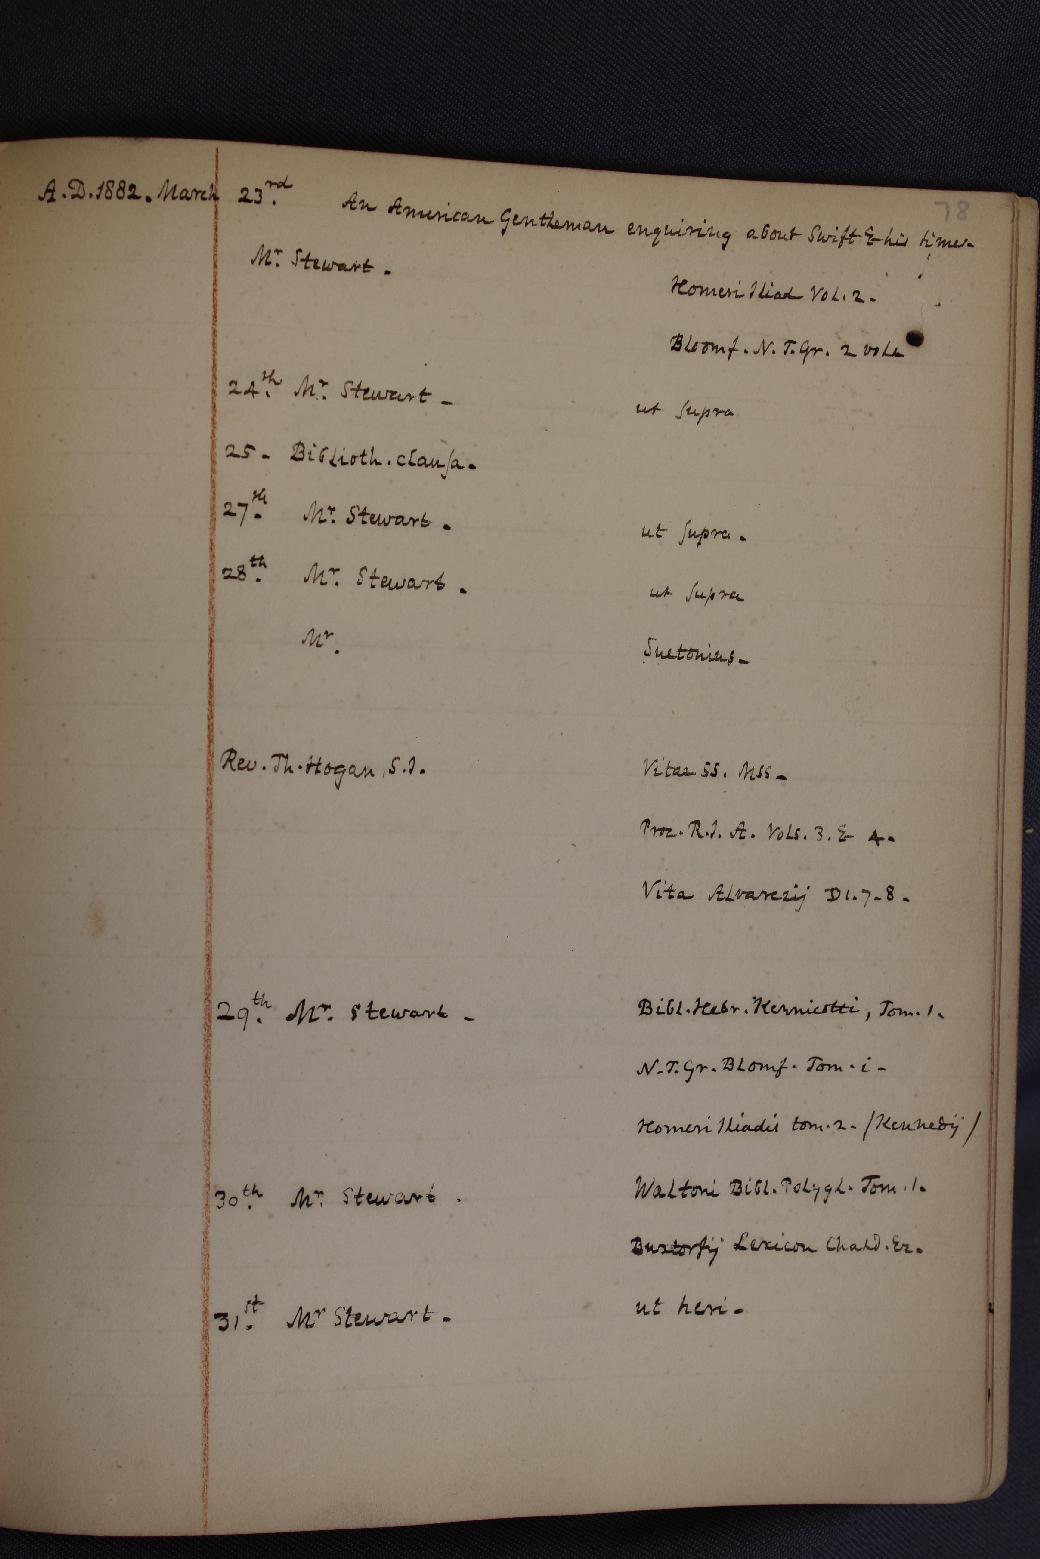 78
A.D. 1882. March 23rd. An American Gentleman enquiring about Swift & his times.
Mr. Stewart. Homeri Iliad Vol. 2.
Bloomf. N. T. Gr. 2 vols
24th. Mr. Stewart. ut supra
25. Biblioth. clausa.
27th. Mr. Stewart. ut supra.
28th. Mr. Stewart. ut supra
Mr. Suetonius.
Rev. Th. Hogan, S.J. Vitae SS. Mss.
Proc. R.I.A. Vols. 3. & 4.
Vita Alvarezij D1.7.8.
29th. Mr. Stewart. Bibl. Hebr. Kennicotti, Tom. 1.
N.T. Gr. Blomf. Tom. i.
Homeri Iliadis tom. 2. (Kennedij)
30th. Mr. Stewart. Waltoni Bibl. Polygl. Tom. 1.
Buxtorfij Lexicon Chald. &c.
31st. Mr Stewart. ut heri.